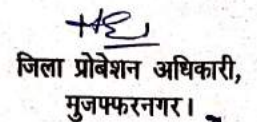 जिला प्रोबेशन अधिकारी,
मुजफ्फरनगर।